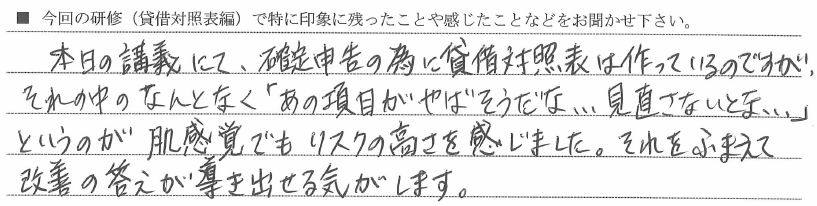 ■ 今回の研修（貸借対照表編）で特に印象に残ったことや感じたことなどをお聞かせ下さい。
本日の講義にて、確定申告の為に貸借対照表は作っているのですが、
それの中のなんとなく「あの項目がやばそうだな...見直さないとな...」
というのが肌感覚でもリスクの高さを感じました。それをふまえて
改善の答えが導き出せる気がします。